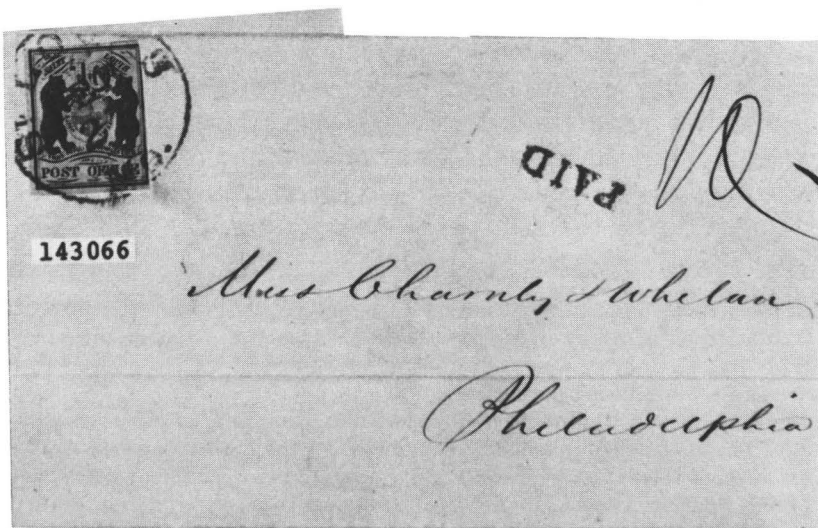 SAINT LOUIS
POST OFFICE
PAID
10
143066
Mess Charnly & Whelan
Philadelphia